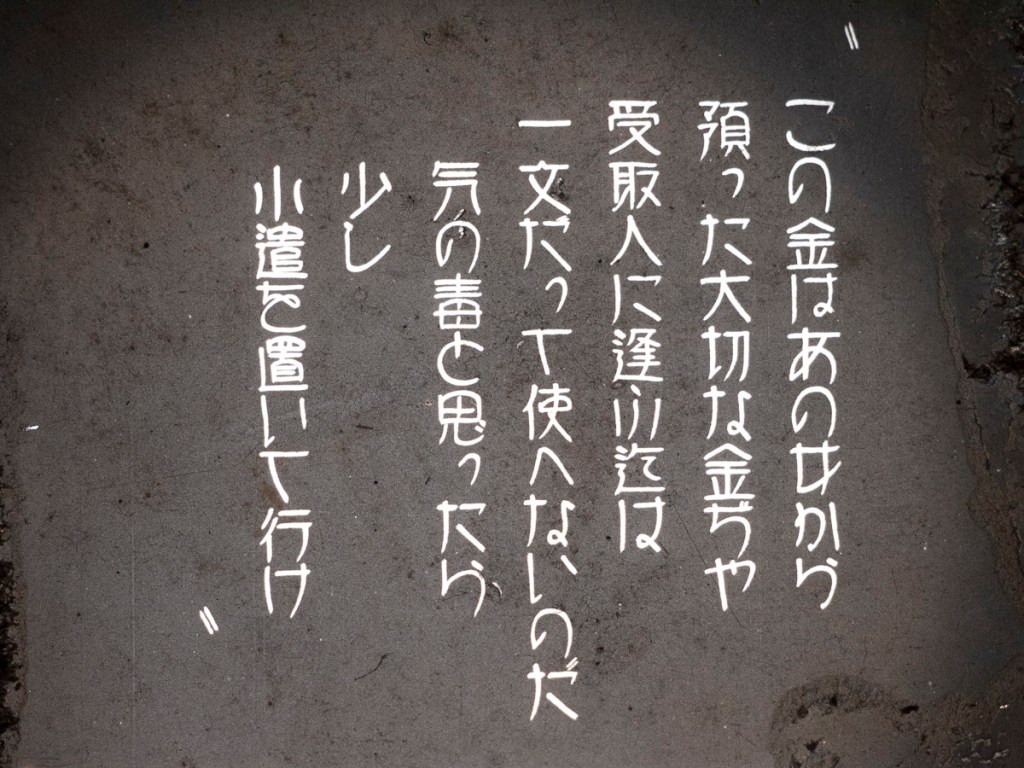 〝この金はあの女から
預った大切な金ぢや
受取人に逢ふ迄は
一文だって使へないのだ
気の毒と思ったら
少し
小遣を置いて行け〟